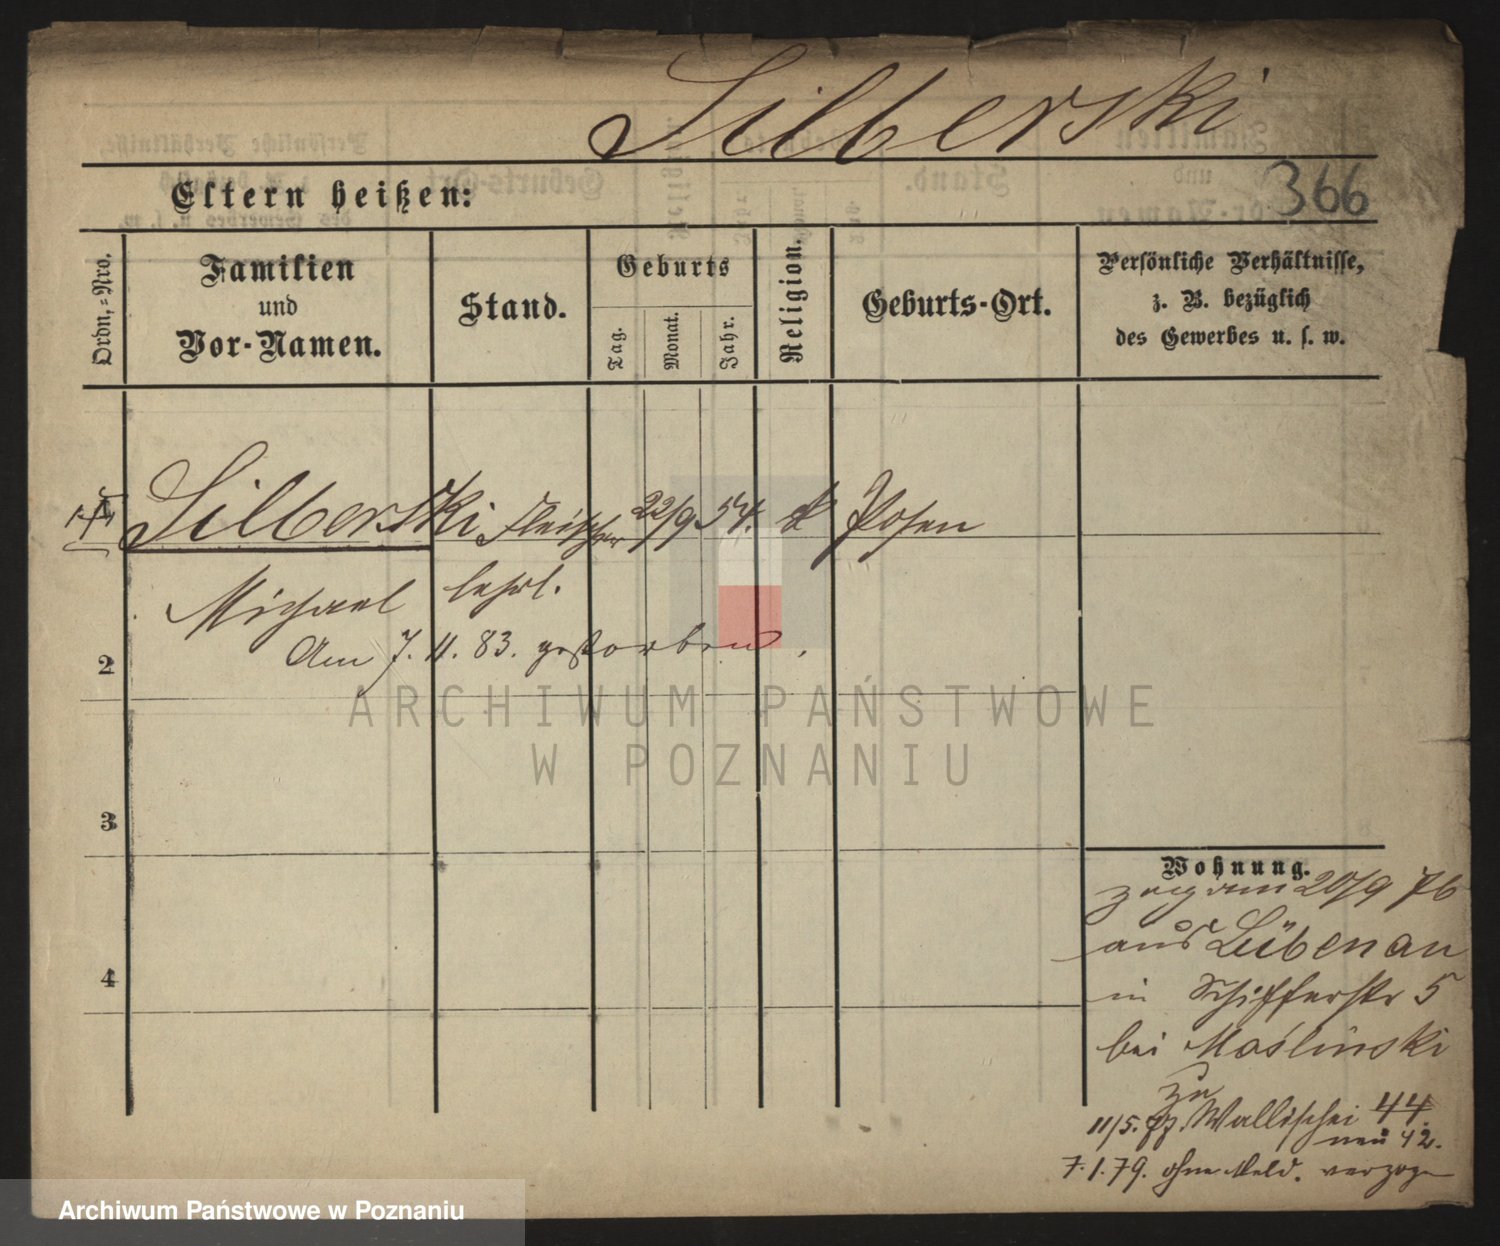 Silberski
Eltern heißen:
366
Ordn.=Nro.
Familien
und
Vor-Namen.
Stand.
Geburts
Tag.
Monat.
Jahr.
Religion.
Geburts-Ort.
Persönliche Verhältnisse,
z. B. bezüglich
des Gewerbes u. s. w.
Silberski Fleischer 22/9 54. k Posen
Michael lehrl.
Am 7. 11. 83. gestorben.
2
3
4
Wohnung.
zog am 20/9 76
aus Lübenau
in Schifferstr 5
bei Moślinski
zu
11/5. 77. Wallischei 44.
neu 42.
7.1.79. ohne Meld. verzogen
ARCHIWUM PAŃSTWOWE
W POZNANIU
Archiwum Państwowe w Poznaniu